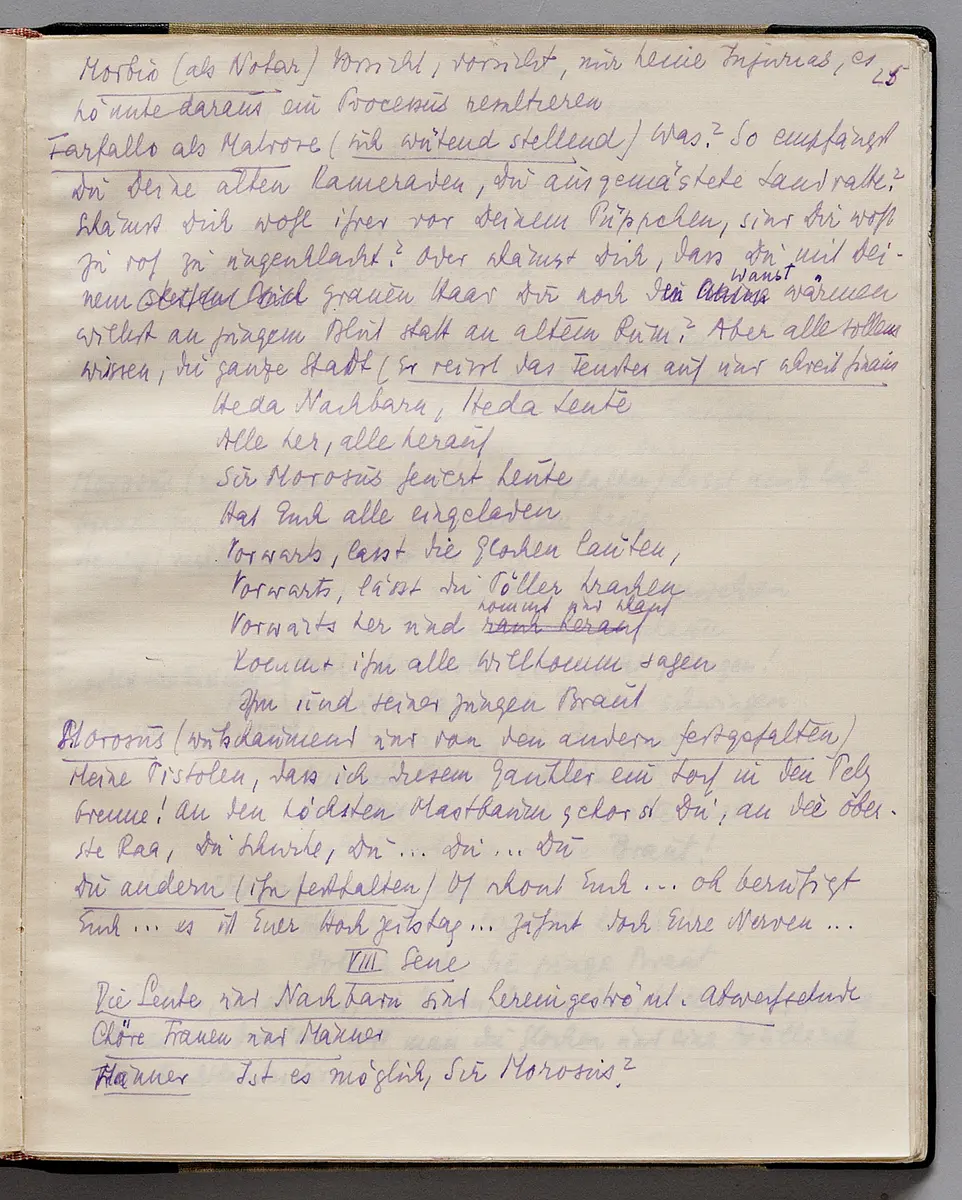 25
Morbio (als Notar) Vorsicht, vorsicht, nur keine Injurias, es
könnte daraus ein Processus resultieren
Farfallo als Matrose (sich wütend stellend) Was? So empfängst
Du Deine alten Kameraden, Du ausgemästete Landratte?
Schämst Dich wohl ihrer vor Deinem Püppchen, sind Dir wohl
zu rot zu ungeschlacht? Oder schämst Dich, dass Du mit Dei-
nem grauen Haar Dir noch den wanst wärmen
willst an jungem Blut statt an altem Rum? Aber alle sollens
wissen, die ganze Stadt (Er reisst das Fenster auf und schreit hinaus
Heda Nachbarn, Heda Leute
Alle her, alle herauf
Sir Morosus feiert heute
Hat Euch alle eingeladen
Vorwarts, lasst die Glocken läuten,
Vorwarts, lässt die Böller krachen
kommt nur
Vorwarts her und rasch herauf
Kommt ihm alle willkomm sagen
Ihm und seiner jungen Braut
Morosus (wutschäumend und von den andern festgehalten)
Meine Pistolen, dass ich diesem Gaukler ein Loch in den Pelz
brenne! An den höchsten Mastbaum gehörst Du, an die öber-
ste Raa, Du Schurke, Du ... Du ... Du
Die andern (ihn festhalten) O schont Euch ... oh beruhigt
Euch ... es ist Euer Hochzeitstag ... zähmt doch Eure Nerven ...
VIII Scene
Die Leute und Nachbarn sind hereingeströmt. Abwechselnde
Chöre Frauen und Männer
Männer Ist es möglich, Sir Morosus?